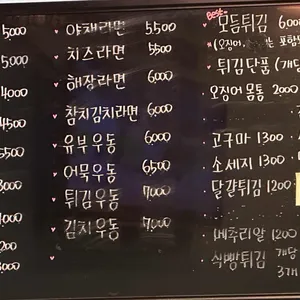 5000
5000
4000
4500
5500
3000
000
200
3000
야채라면 5,500
치즈라면 5,500
해장라면 6,000
참치김치라면 6,000
유부우동 6,000
어묵우동 6,500
튀김우동 7,000
김치우동 7,000
Best
모듬튀김 6,00
(오징어, 는 포함
튀김단품 (개당
오징어몸통 2000
고구마 1300
소세지 1300
달걀튀김 1200
메추리알 1200
식빵튀김 개당
3개